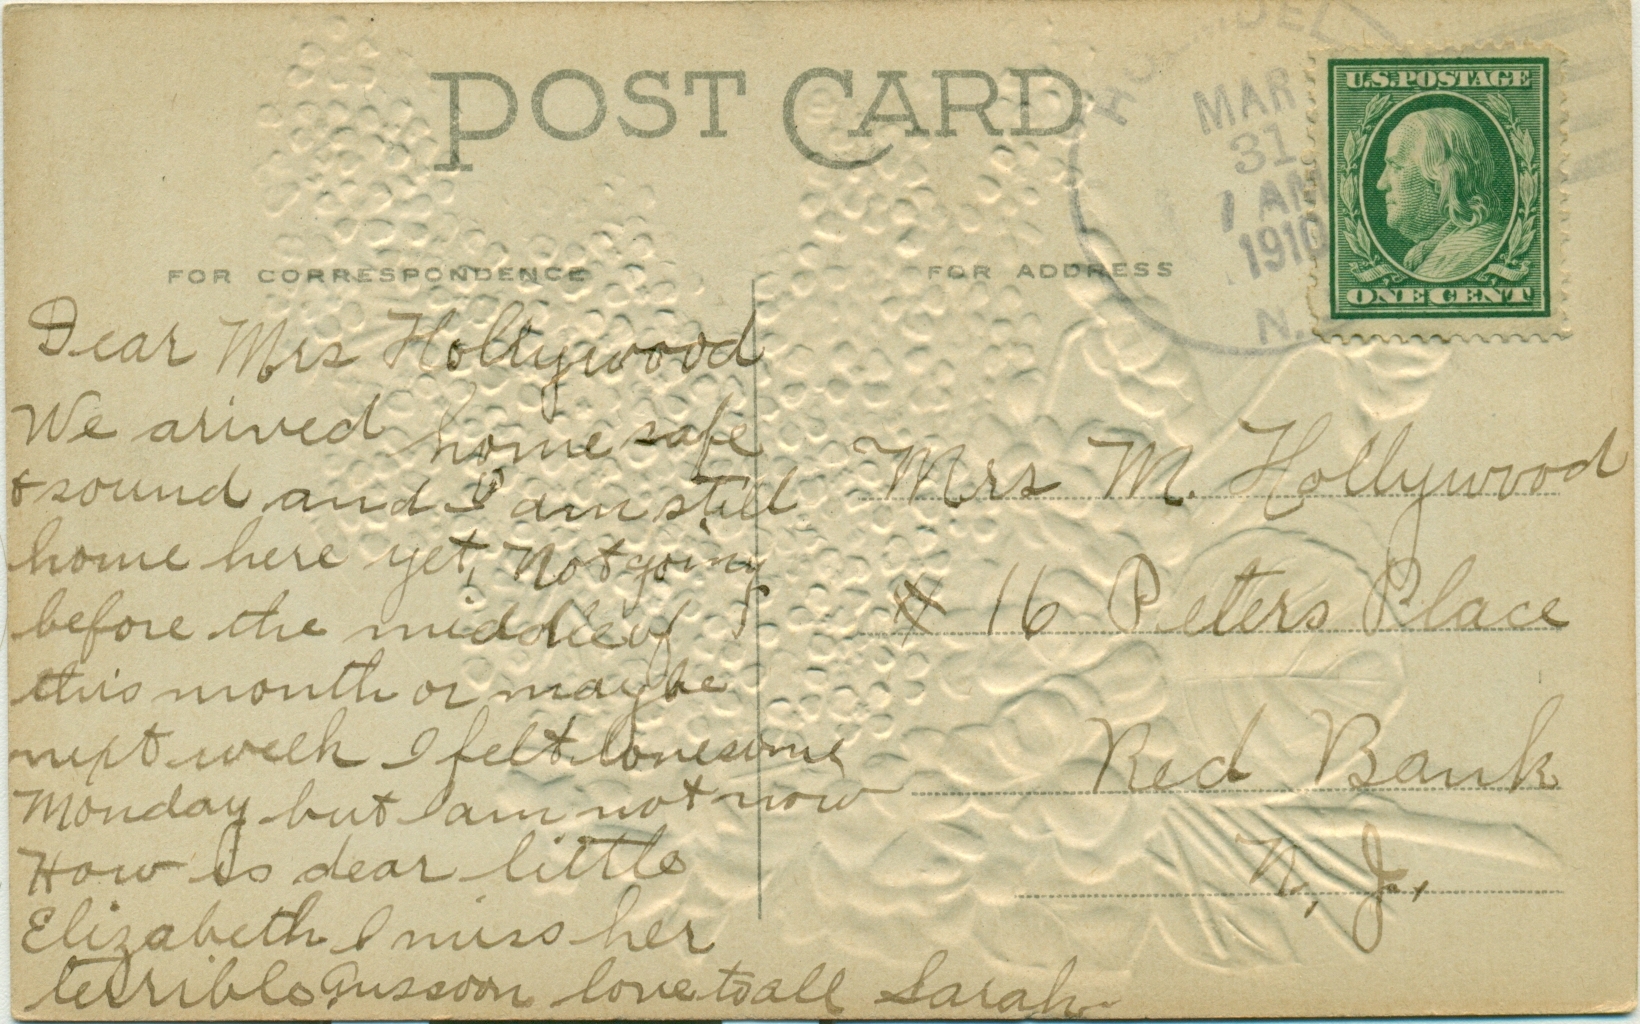 POST CARD
HOLMDEL
MAR
31
1 AM
1910
N.
U.S. POSTAGE
ONE CENT
FOR CORRESPONDENCE
FOR ADDRESS
Dear Mrs Hollywood
We arived home safe
& sound and I am still
home here yet, Not going
before the middle of
this month or maybe
next week I felt lonesome
Monday but I am not now
How is dear little
Elizabeth I miss her
terrible Ans soon love to all Sarah
Mrs M. Hollywood
# 16 Peters Place
Red Bank
N. J.